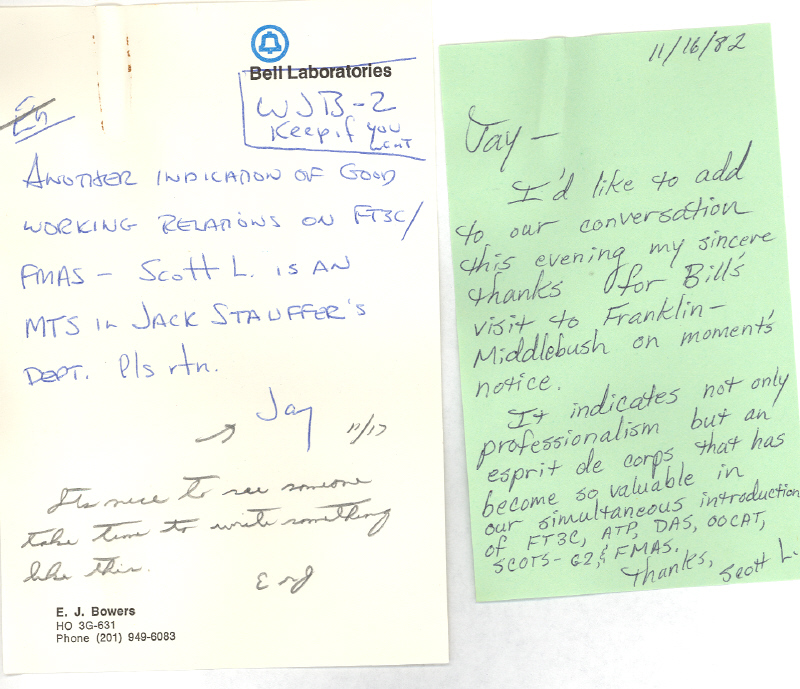 Bell Laboratories
WJB-2
Keep if you
want
Ed
ANOTHER INDICATION OF GOOD
WORKING RELATIONS ON FT3C/
FMAS - SCOTT L. IS AN
MTS IN JACK STAUFFER'S
DEPT. Pls rtn.
Jay
11/17
Its nice to see someone
take time to write something
like this.
E. J. Bowers
HO 3G-631
Phone (201) 949-6083
11/16/82
Jay —
I'd like to add
to our conversation
this evening my sincere
thanks for Bill's
visit to Franklin-
Middlebush on moment's
notice.
It indicates not only
professionalism but an
esprit de corps that has
become so valuable in
our simultaneous introduction
of FT3C, ATP, DAS, OOCAT,
SCOTS-G2, & FMAS.
Thanks, Scott L.